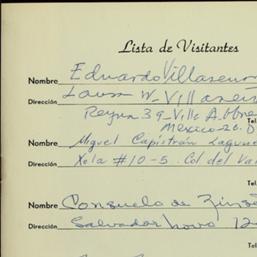 Lista de Visitantes
Nombre Eduardo Villasenor
Dirección Laura W. Villasen
Reyna 39 - Ville A. Obre
Tel.
Mexico 20. D
Nombre Miguel Capistrán Lagunes
Dirección Xola #10-5. Col del Va
Tel.
Nombre Consuelo de
Dirección Salvador Novo 12
Tel.